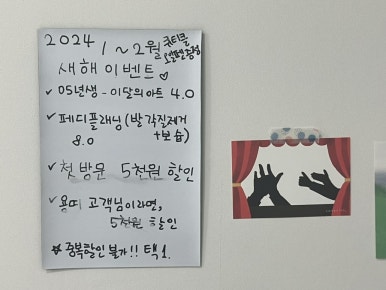 2024 1~2월 큐티클
오일펜증정
새해 이벤트♡
✓ 05년생 - 이달의아트 4.0
✓ 페디플래닝(발 각질제거
8.0 +보습)
✓ 첫 방문 5천원 할인
✓ 용띠 고객님이라면,
5천원 할인
☆ 중복할인 불가!! 택1.